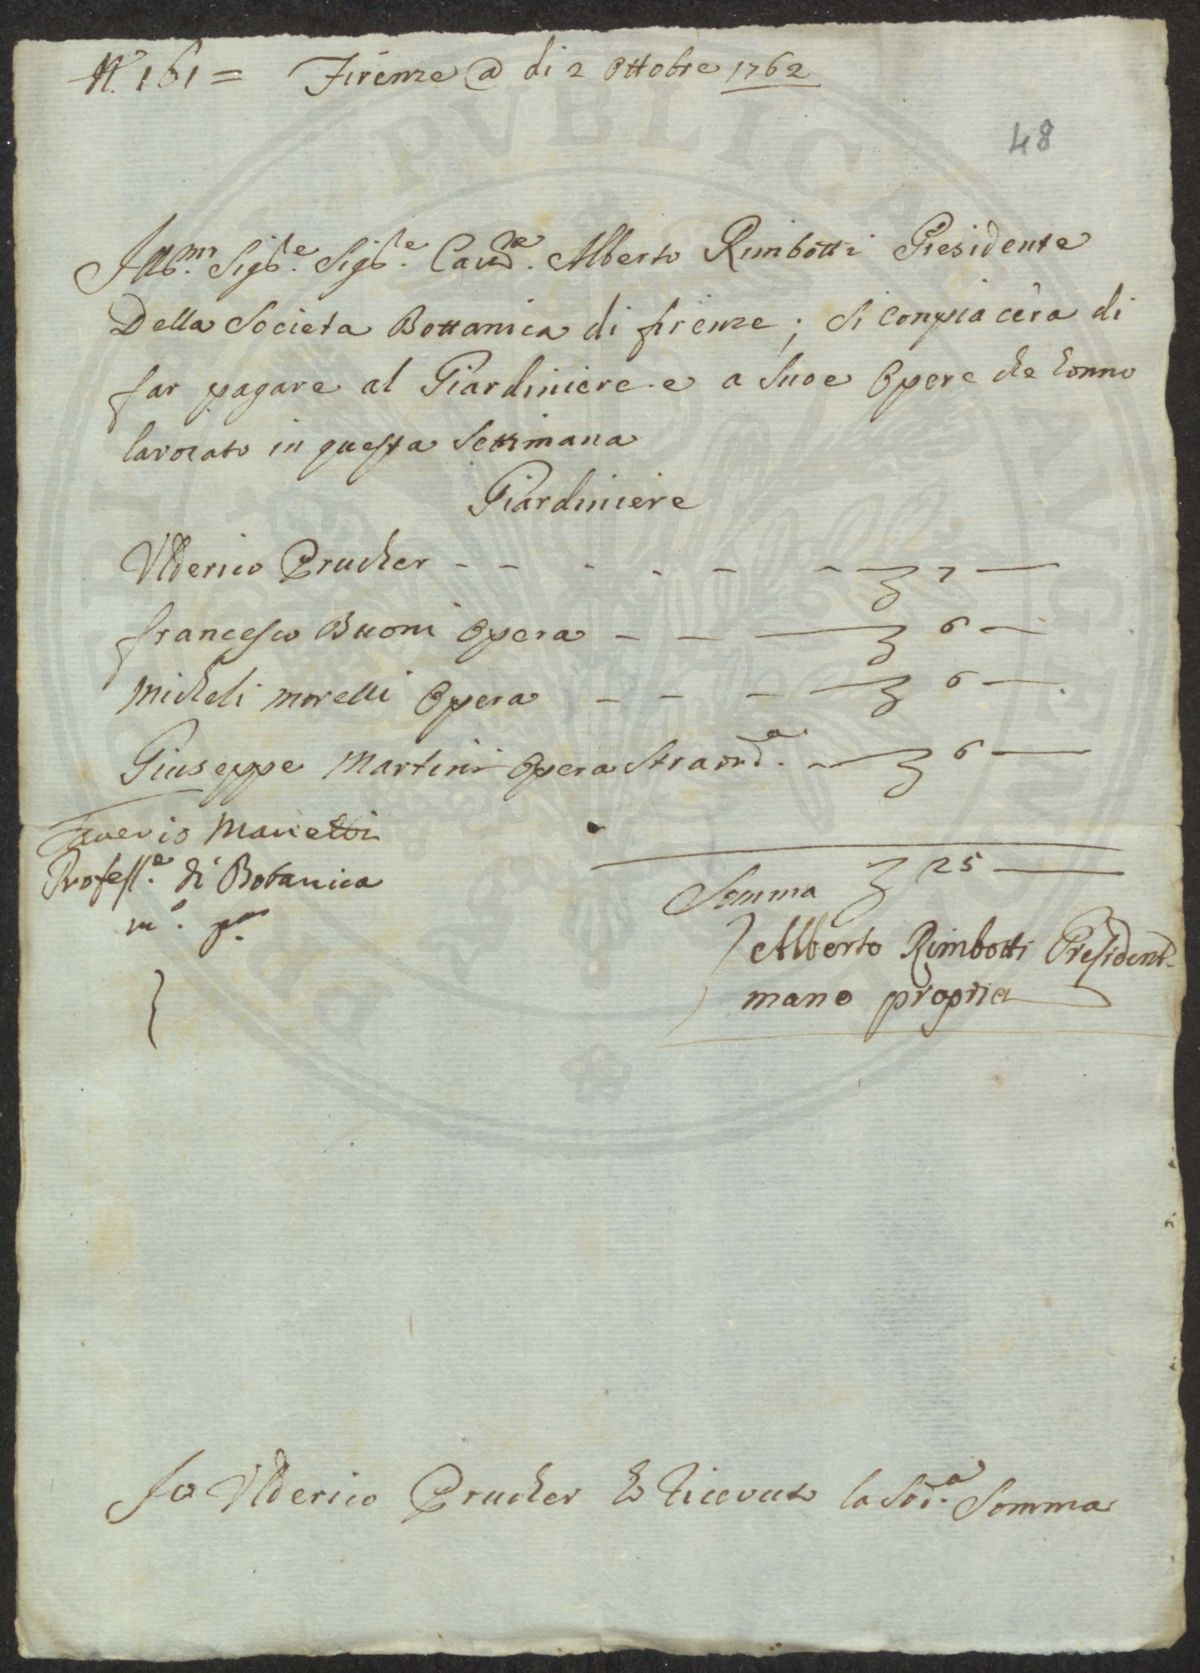 N.° 161 = Firenze @ di 2 Ottobre 1762
48
Ill.mo Sig.re Sig.re Cav.re Alberto Rimbotti Presidente
Della Societa Bottanica di firenze; Si Conpiacera di
far pagare al Giardiniere e a Suoe Opere che honno
lavorato in questa Settimana
Giardiniere
Ulderico Prucher - - - - - - 7 —
francesco Buoni Opera - - — 6 —
Micheli Morelli Opera - - - — 6 —
Giuseppe Martini Opera Straord.a — 6 —
Saverio Manetti
Profess.e di Botanica
m.o p.a
Somma 25 —
Alberto Rimbotti President
mano propria
Io Ulderico Prucher ho ricevuto la Sod.a Somma